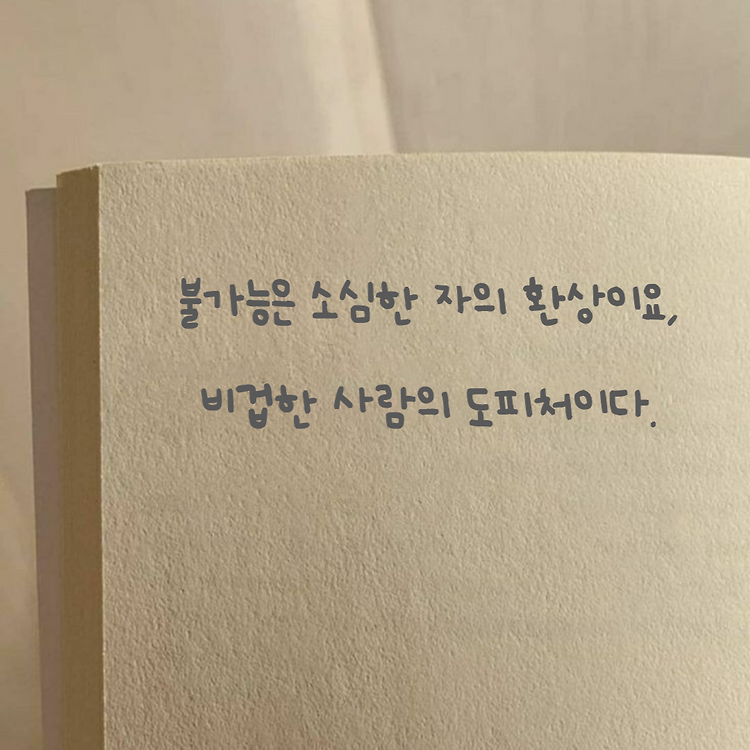 불가능은 소심한 자의 환상이요,
비겁한 사람의 도피처이다.